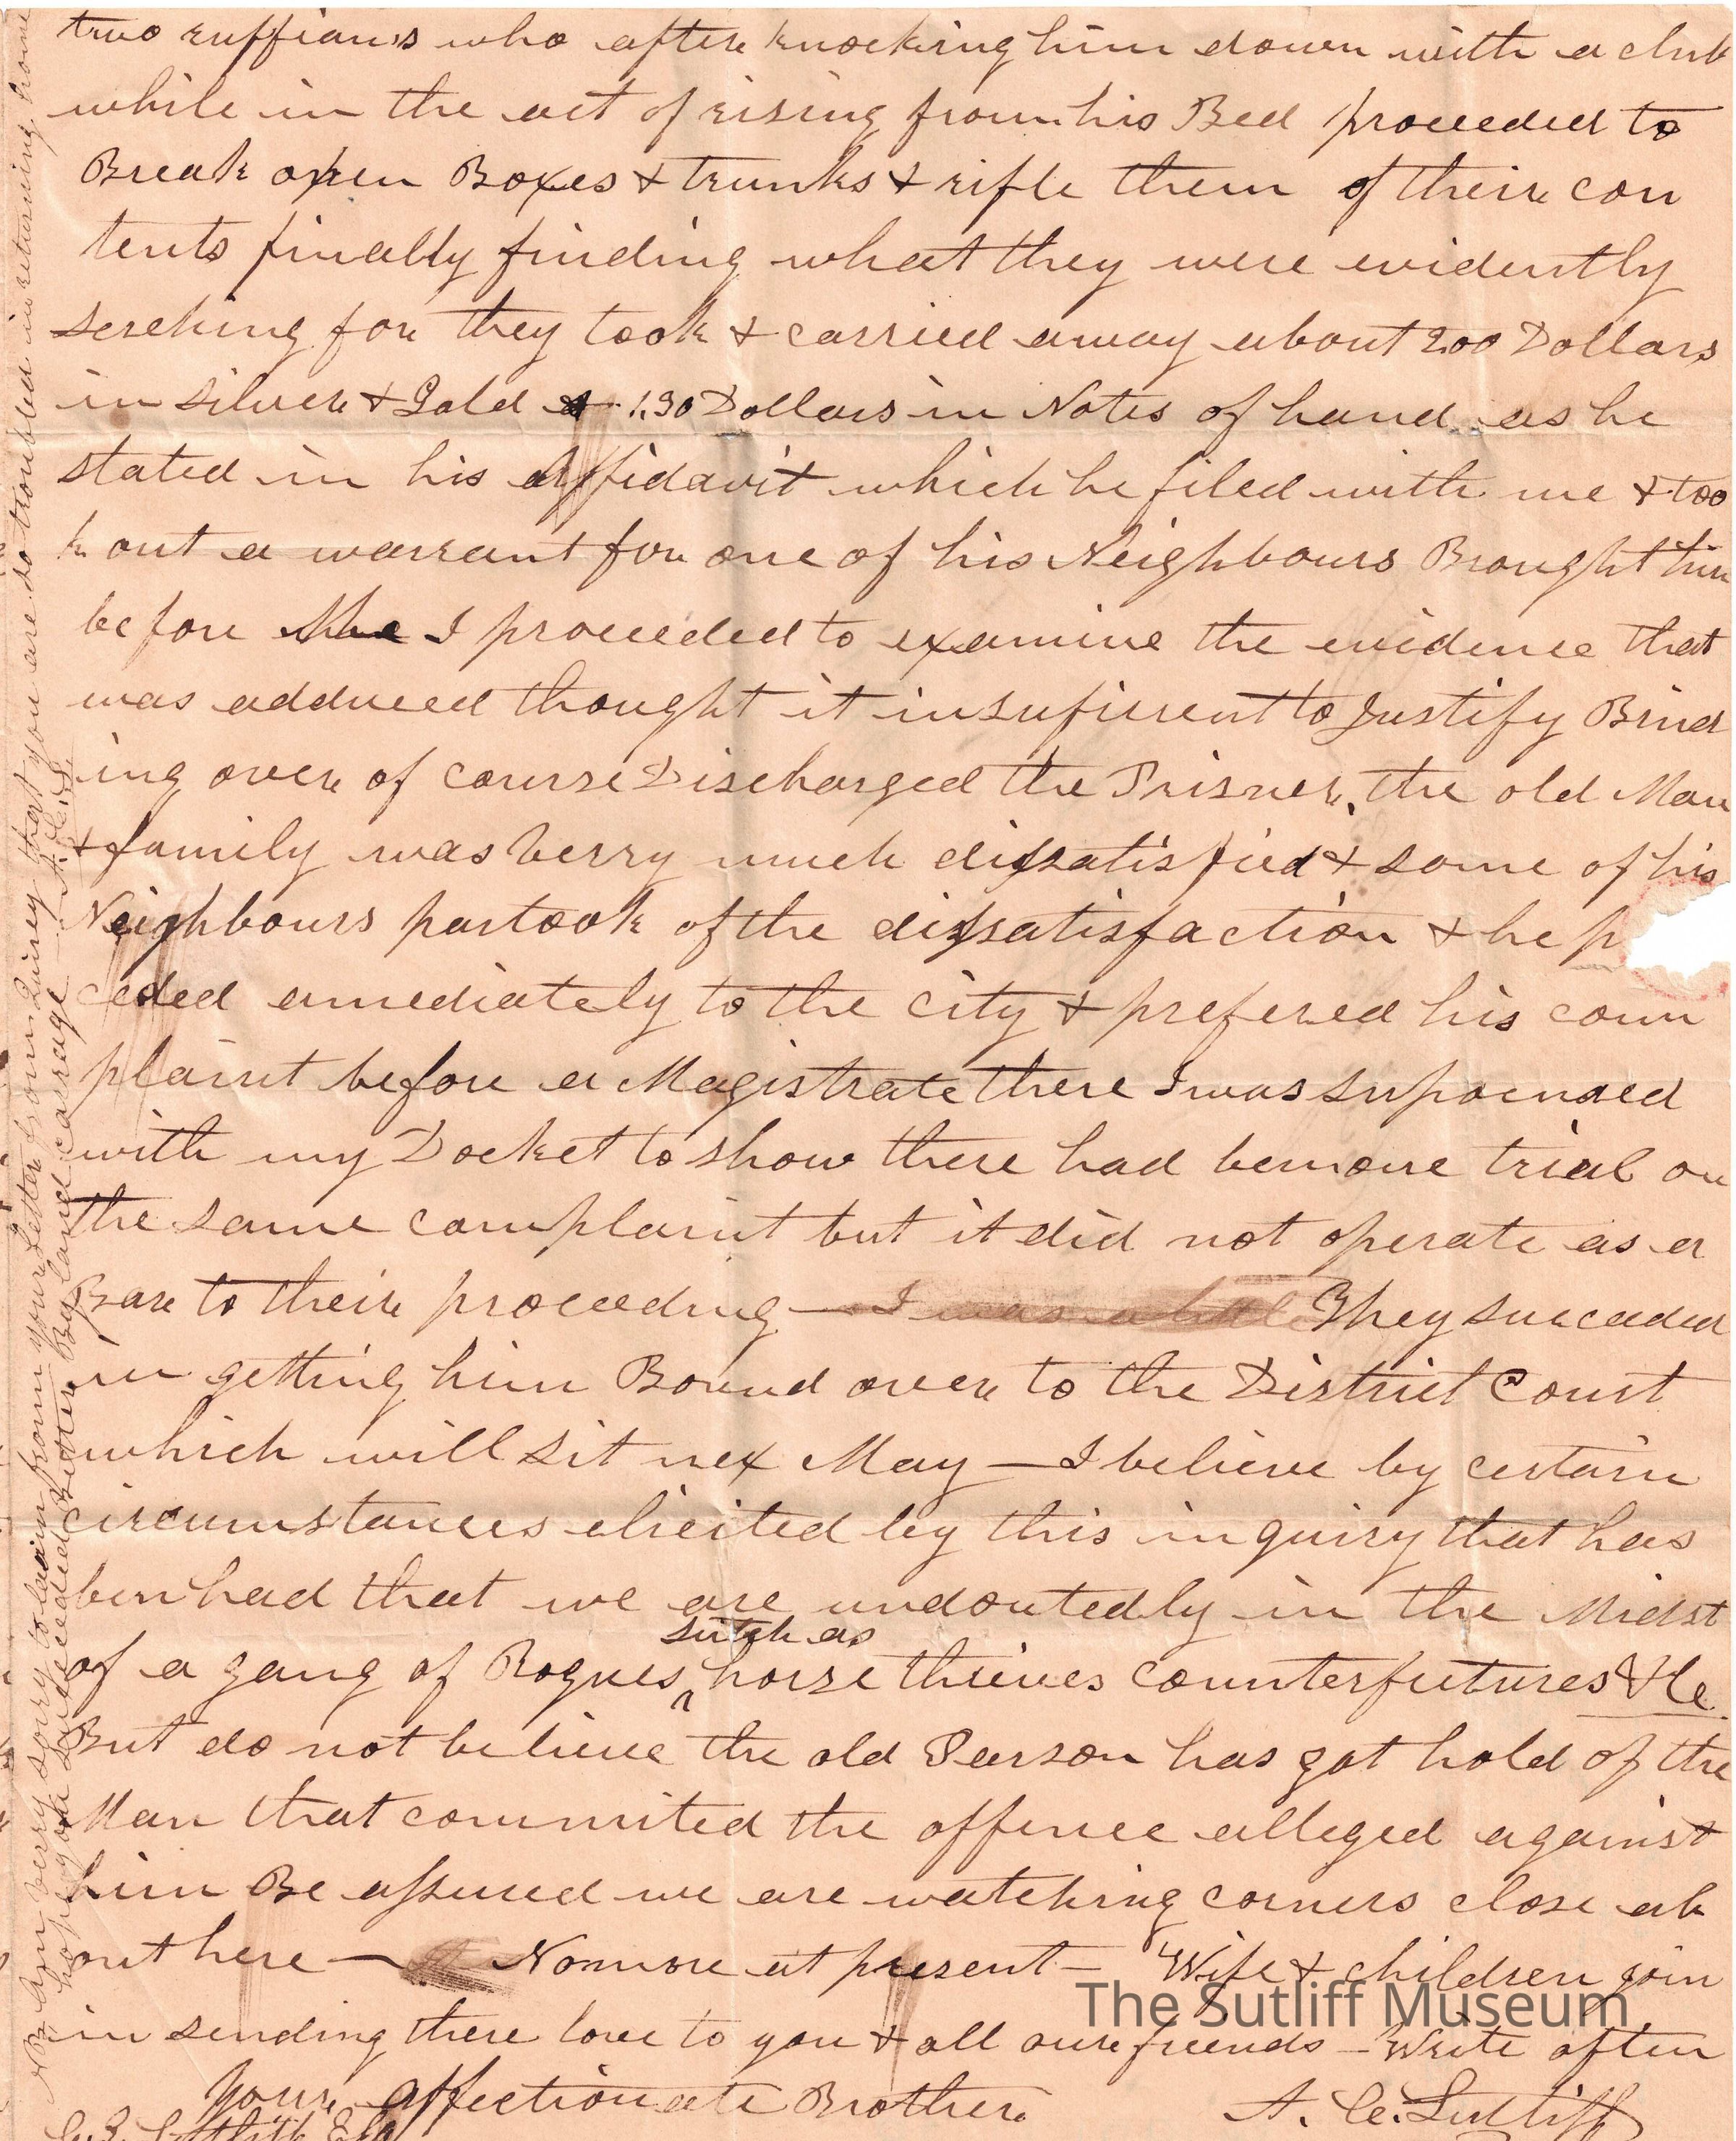 two ruffians who after knocking him down with a club
while in the act of rising from his Bed proceeded to
Break open Boxes & trunks & rifle them of their con
tents finally finding what they were evidently
serching for they took & carried away about 200 Dollars
in silver & Gold & 130 Dollars in Notes of hand as he
stated in his affidavit which he filed with me & too
k out a warrant for one of his Neighbours Brought him
before me I proceeded to examine the evidence that
was adduced thought it insuficient to Justify Bind
ing over of course Discharged the Prisner, the old Man
& family was verry much dissatisfied & some of his
Neighbours partook of the dissatisfaction & he p
ceded emediately to the city & prefered his com
plaint before a Magistrate there I was supoenaed
with my Docket to show there had been one trial on
the same complaint but it did not operate as a
Bare to their proceeding — I was a little They succeded
in getting him Bound over to the District Court
which will sit nex May — I believe by certain
circumstances elicited by this inquiry that has
ben had that we are undoutedly in the Midst
sutch as
of a gang of Rogues ^ horse thieves counterfutures &c
But do not believe the old Person has got hold of the
Man that commited the offence alleged against
him Be assured we are watching corners close ab
out here — No more at present — Wife & children join
in sending there love to you & all our friends — Write often
Your affectionate Brother
A. C. Sutliff
Sutliff Esq
NB I am verry sorry to lairn from your Letter from Quincy that you are so troubled in returning home
hope you succeeded Better By land carrage — A. C. S.
The Sutliff Museum